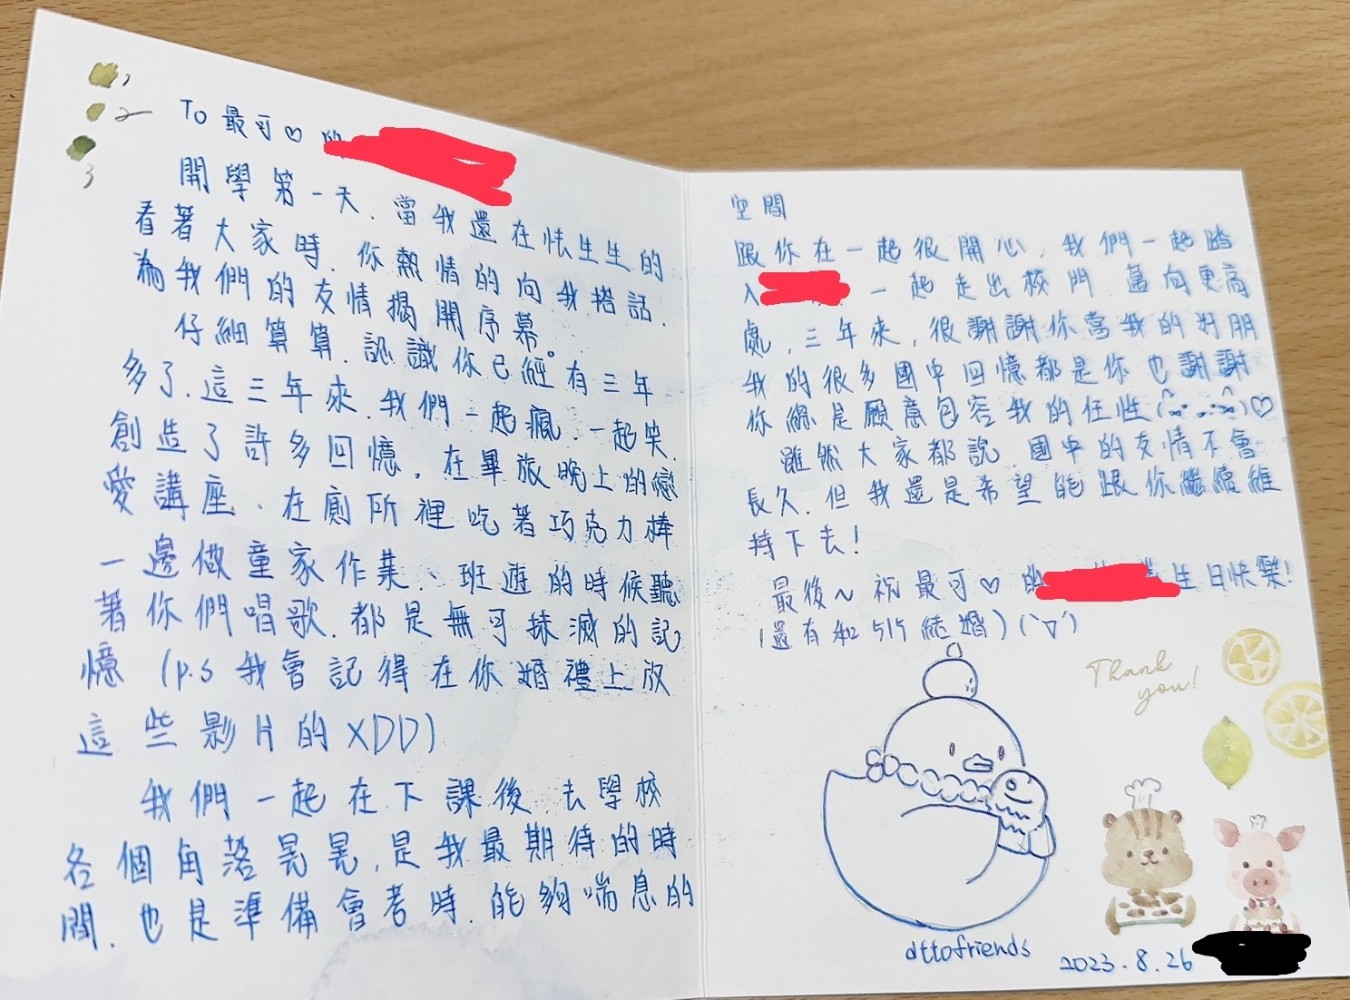 1
2
3
To 最可♡的
開學第一天，當我還在怯生生的
看著大家時，你熱情的向我搭話，
為我們的友情揭開序幕。
仔細算算，認識你已經有三年
多了，這三年來，我們一起瘋，一起笑，
創造了許多回憶，在畢旅晚上的戀
愛講座、在廁所裡吃著巧克力棒
一邊做童家作業、班遊的時候聽
著你們唱歌，都是無可抹滅的記
憶 (p.s 我會記得在你婚禮上放
這些影片的XDD)
我們一起在下課後去學校
各個角落晃晃，是我最期待的時
間，也是準備會考時，能夠喘息的
空間
跟你在一起很開心，我們一起踏
入 一起走出校門，邁向更高
處，三年來，很謝謝你當我的好朋
我的很多國中回憶都是你也謝謝
你總是願意包容我的任性♡
雖然大家都說 國中的友情不會
長久，但我還是希望能跟你繼續維
持下去！
最後~祝最可♡的 生日快樂！
(還有和 結婚)(`▽´)
Thank
you!
dttofriends
2023.8.26